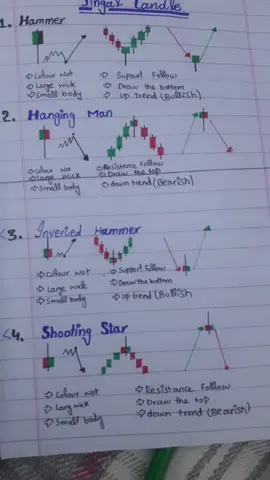 Singal Candle
1. Hammer
⇨ Colour Not
⇨ Large wick
⇨ Small body
⇨ Suport Follow
⇨ Draw the bottem
⇨ Up Trend (Bullish)
2. Hanging Man
⇨ Colour No
⇨ Large wick
⇨ Small body
⇨ Resistance Follow
⇨ Draw the top
⇨ down trend (Bearish)
<3. Inverted Hammer
⇨ Colour Not
⇨ Large wick
⇨ Small body
⇨ Support Follow
⇨ Draw the bottem
⇨ Up trend (Bullish
<4. Shooting Star
⇨ Colour Not
⇨ Larg wick
⇨ Small body
⇨ Resistance Follow
⇨ Draw the top
⇨ down trend (Bearish)